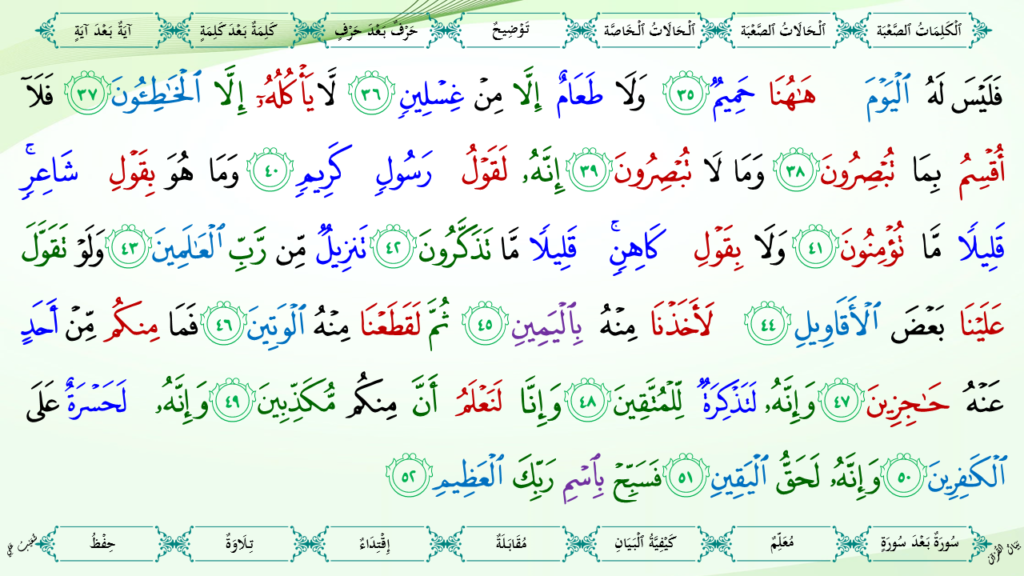 اَلْكَلِمَاتُ الصَّعْبَة اَلْحَالَاتُ الصَّعْبَة اَلْحَالَاتُ الْخَاصَّة تَوْضِيحٌ حَرْفٌ بَعْدَ حَرْفٍ كَلِمَةٌ بَعْدَ كَلِمَةٍ آيَةٌ بَعْدَ آيَةٍ
فَلَيْسَ لَهُ الْيَوْمَ هَٰهُنَا حَمِيمٌ ٣٥ وَلَا طَعَامٌ إِلَّا مِنْ غِسْلِينٍ ٣٦ لَّا يَأْكُلُهُۥٓ إِلَّا الْخَٰطِـُٔونَ ٣٧ فَلَآ
أُقْسِمُ بِمَا تُبْصِرُونَ ٣٨ وَمَا لَا تُبْصِرُونَ ٣٩ إِنَّهُۥ لَقَوْلُ رَسُولٍ كَرِيمٍ ٤٠ وَمَا هُوَ بِقَوْلِ شَاعِرٍۚ
قَلِيلًا مَّا تُؤْمِنُونَ ٤١ وَلَا بِقَوْلِ كَاهِنٍۚ قَلِيلًا مَّا تَذَكَّرُونَ ٤٢ تَنزِيلٌ مِّن رَّبِّ الْعَٰلَمِينَ ٤٣ وَلَوْ تَقَوَّلَ
عَلَيْنَا بَعْضَ الْأَقَاوِيلِ ٤٤ لَأَخَذْنَا مِنْهُ بِالْيَمِينِ ٤٥ ثُمَّ لَقَطَعْنَا مِنْهُ الْوَتِينَ ٤٦ فَمَا مِنكُم مِّنْ أَحَدٍ
عَنْهُ حَٰجِزِينَ ٤٧ وَإِنَّهُۥ لَتَذْكِرَةٌ لِّلْمُتَّقِينَ ٤٨ وَإِنَّا لَنَعْلَمُ أَنَّ مِنكُم مُّكَذِّبِينَ ٤٩ وَإِنَّهُۥ لَحَسْرَةٌ عَلَى
الْكَٰفِرِينَ ٥٠ وَإِنَّهُۥ لَحَقُّ الْيَقِينِ ٥١ فَسَبِّحْ بِاسْمِ رَبِّكَ الْعَظِيمِ ٥٢
سُورَةٌ بَعْدَ سُورَةٍ مُعَلِّمٌ كَيْفِيَّةُ الْبَيَانِ مُقَابَلَةٌ إِقْتِدَاءٌ تِلَاوَةٌ حِفْظٌ
بَيَانُ الْقُرْآنِ